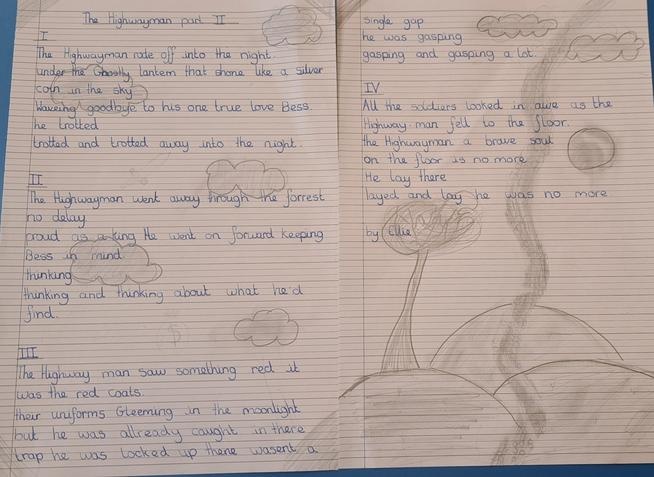 The Highwayman part II
I
The Highwayman rode off into the night.
under the Ghostly lantern that shone like a silver
coin in the sky
Waveing goodbye to his one true love Bess.
he trotted
trotted and trotted away into the night.
II
The Highwayman went away through the forrest
no delay.
proud as a king He went on forward keeping
Bess in mind
thinking
thinking and thinking about what he'd
find.
III
The Highway man saw something red it
was the red coats.
their uniforms Gleeming in the moonlight
but he was allready caught in there
trap he was locked up there wasent a
single gap
he was gasping
gasping and gasping a lot.
IV
All the soldiers looked in awe as the
Highway-man fell to the floor.
the Highwayman a brave soul
on the floor is no more
He lay there
layed and lay he was no more
by Ellie